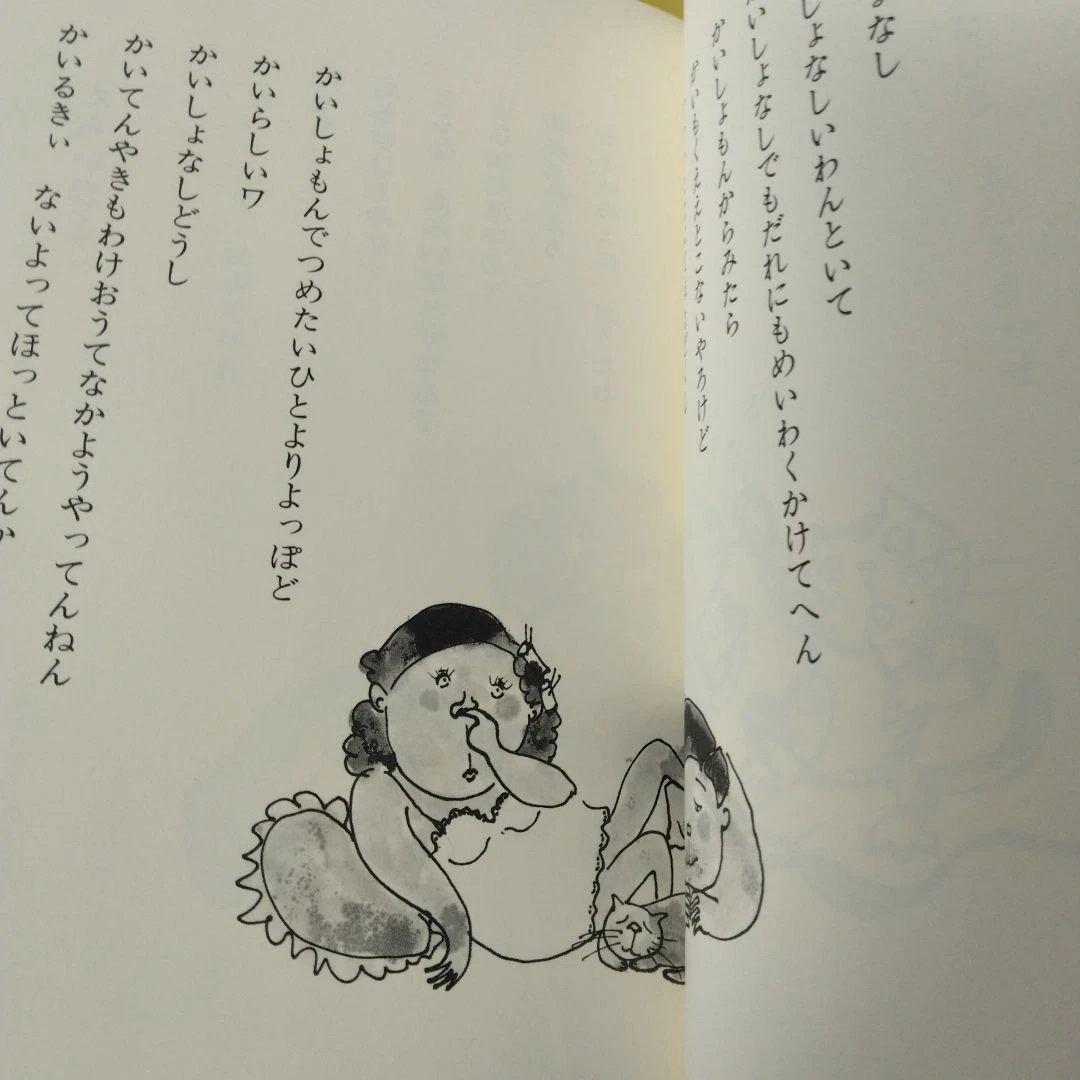 ょなし
しょなしいわんといて
いしょなしでもだれにもめいわくかけてへん
かいしょもんからみたら
かいもくええとこないやろけど
かいしょもんでつめたいひとよりよっぽど
かいらしいワ
かいしょなしどうし
かいてんやきもわけおうてなかようやってんねん
かいるきぃ　ないよってほっといてんか